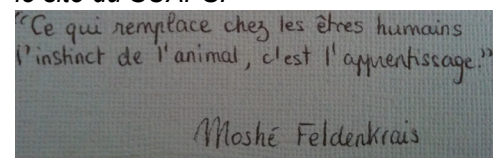 le site du
"Ce qui remplace chez les êtres humains
l'instinct de l'animal, c'est l'apprentissage."
Moshé Feldenkrais